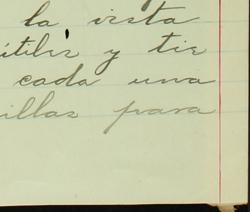 la vista
útiles y tie
cada una
illas para